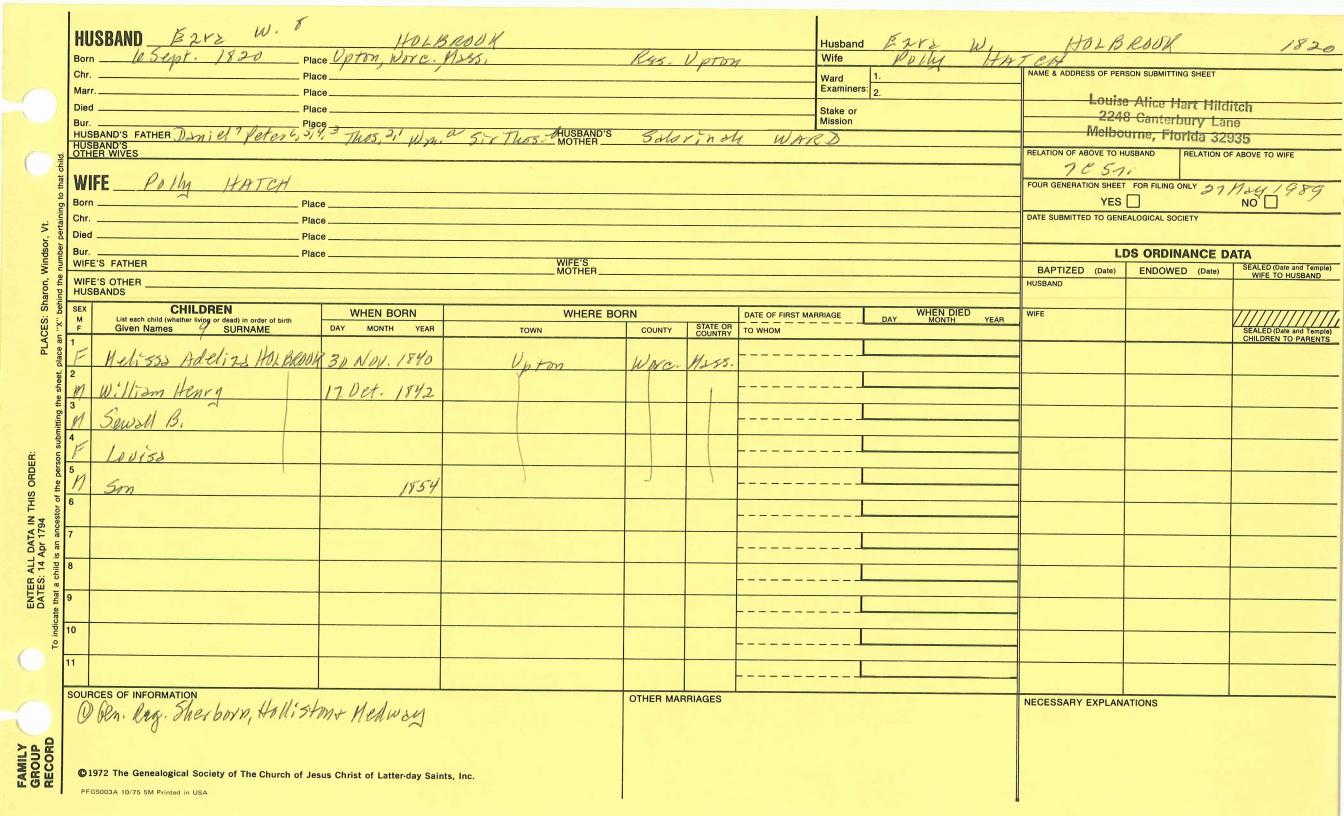 HUSBAND Ezra W. 8 HOLBROOK
Born 6 Sept. 1820 Place Upton, Worc. Mass. Res. Upton
Chr. Place
Marr. Place
Died Place
Bur. Place
HUSBAND'S FATHER Daniel 7 Peter 6,5,4,3 Thos. 2,1 Wm. a Sir Thos. HUSBAND'S MOTHER Sabrinah WARD
HUSBAND'S OTHER WIVES
WIFE Polly HATCH
Born Place
Chr. Place
Died Place
Bur. Place
WIFE'S FATHER WIFE'S MOTHER
WIFE'S OTHER HUSBANDS
Husband Ezra W. HOLBROOK 1820
Wife Polly HATCH
Ward Examiners: 1. 2.
Stake or Mission
NAME & ADDRESS OF PERSON SUBMITTING SHEET
Louise Alice Hart Hilditch
2248 Canterbury Lane
Melbourne, Florida 32935
RELATION OF ABOVE TO HUSBAND RELATION OF ABOVE TO WIFE
7C 5r.
FOUR GENERATION SHEET FOR FILING ONLY 27 May 1989
YES NO
DATE SUBMITTED TO GENEALOGICAL SOCIETY
LDS ORDINANCE DATA
BAPTIZED (Date) ENDOWED (Date) SEALED (Date and Temple) WIFE TO HUSBAND
HUSBAND
WIFE
SEALED (Date and Temple) CHILDREN TO PARENTS
SEX M F
CHILDREN
List each child (whether living or dead) in order of birth
Given Names 9 SURNAME
WHEN BORN
DAY MONTH YEAR
WHERE BORN
TOWN COUNTY STATE OR COUNTRY
DATE OF FIRST MARRIAGE
TO WHOM
WHEN DIED
DAY MONTH YEAR
1 F Melissa Adeliza HOLBROOK 30 Nov. 1840 Upton Worc. Mass.
2 M William Henry 17 Oct. 1842
3 M Sewall B.
4 F Louisa
5 M Son 1854
6
7
8
9
10
11
SOURCES OF INFORMATION
① Gen. Reg. Sherborn, Holliston & Medway
OTHER MARRIAGES
NECESSARY EXPLANATIONS
©1972 The Genealogical Society of The Church of Jesus Christ of Latter-day Saints, Inc.
PFGS003A 10/75 5M Printed in USA
FAMILY GROUP RECORD
ENTER ALL DATA IN THIS ORDER:
DATES: 14 Apr 1794
PLACES: Sharon, Windsor, Vt.
To indicate that a child is an ancestor of the person submitting the sheet, place an "X" behind the number pertaining to that child.